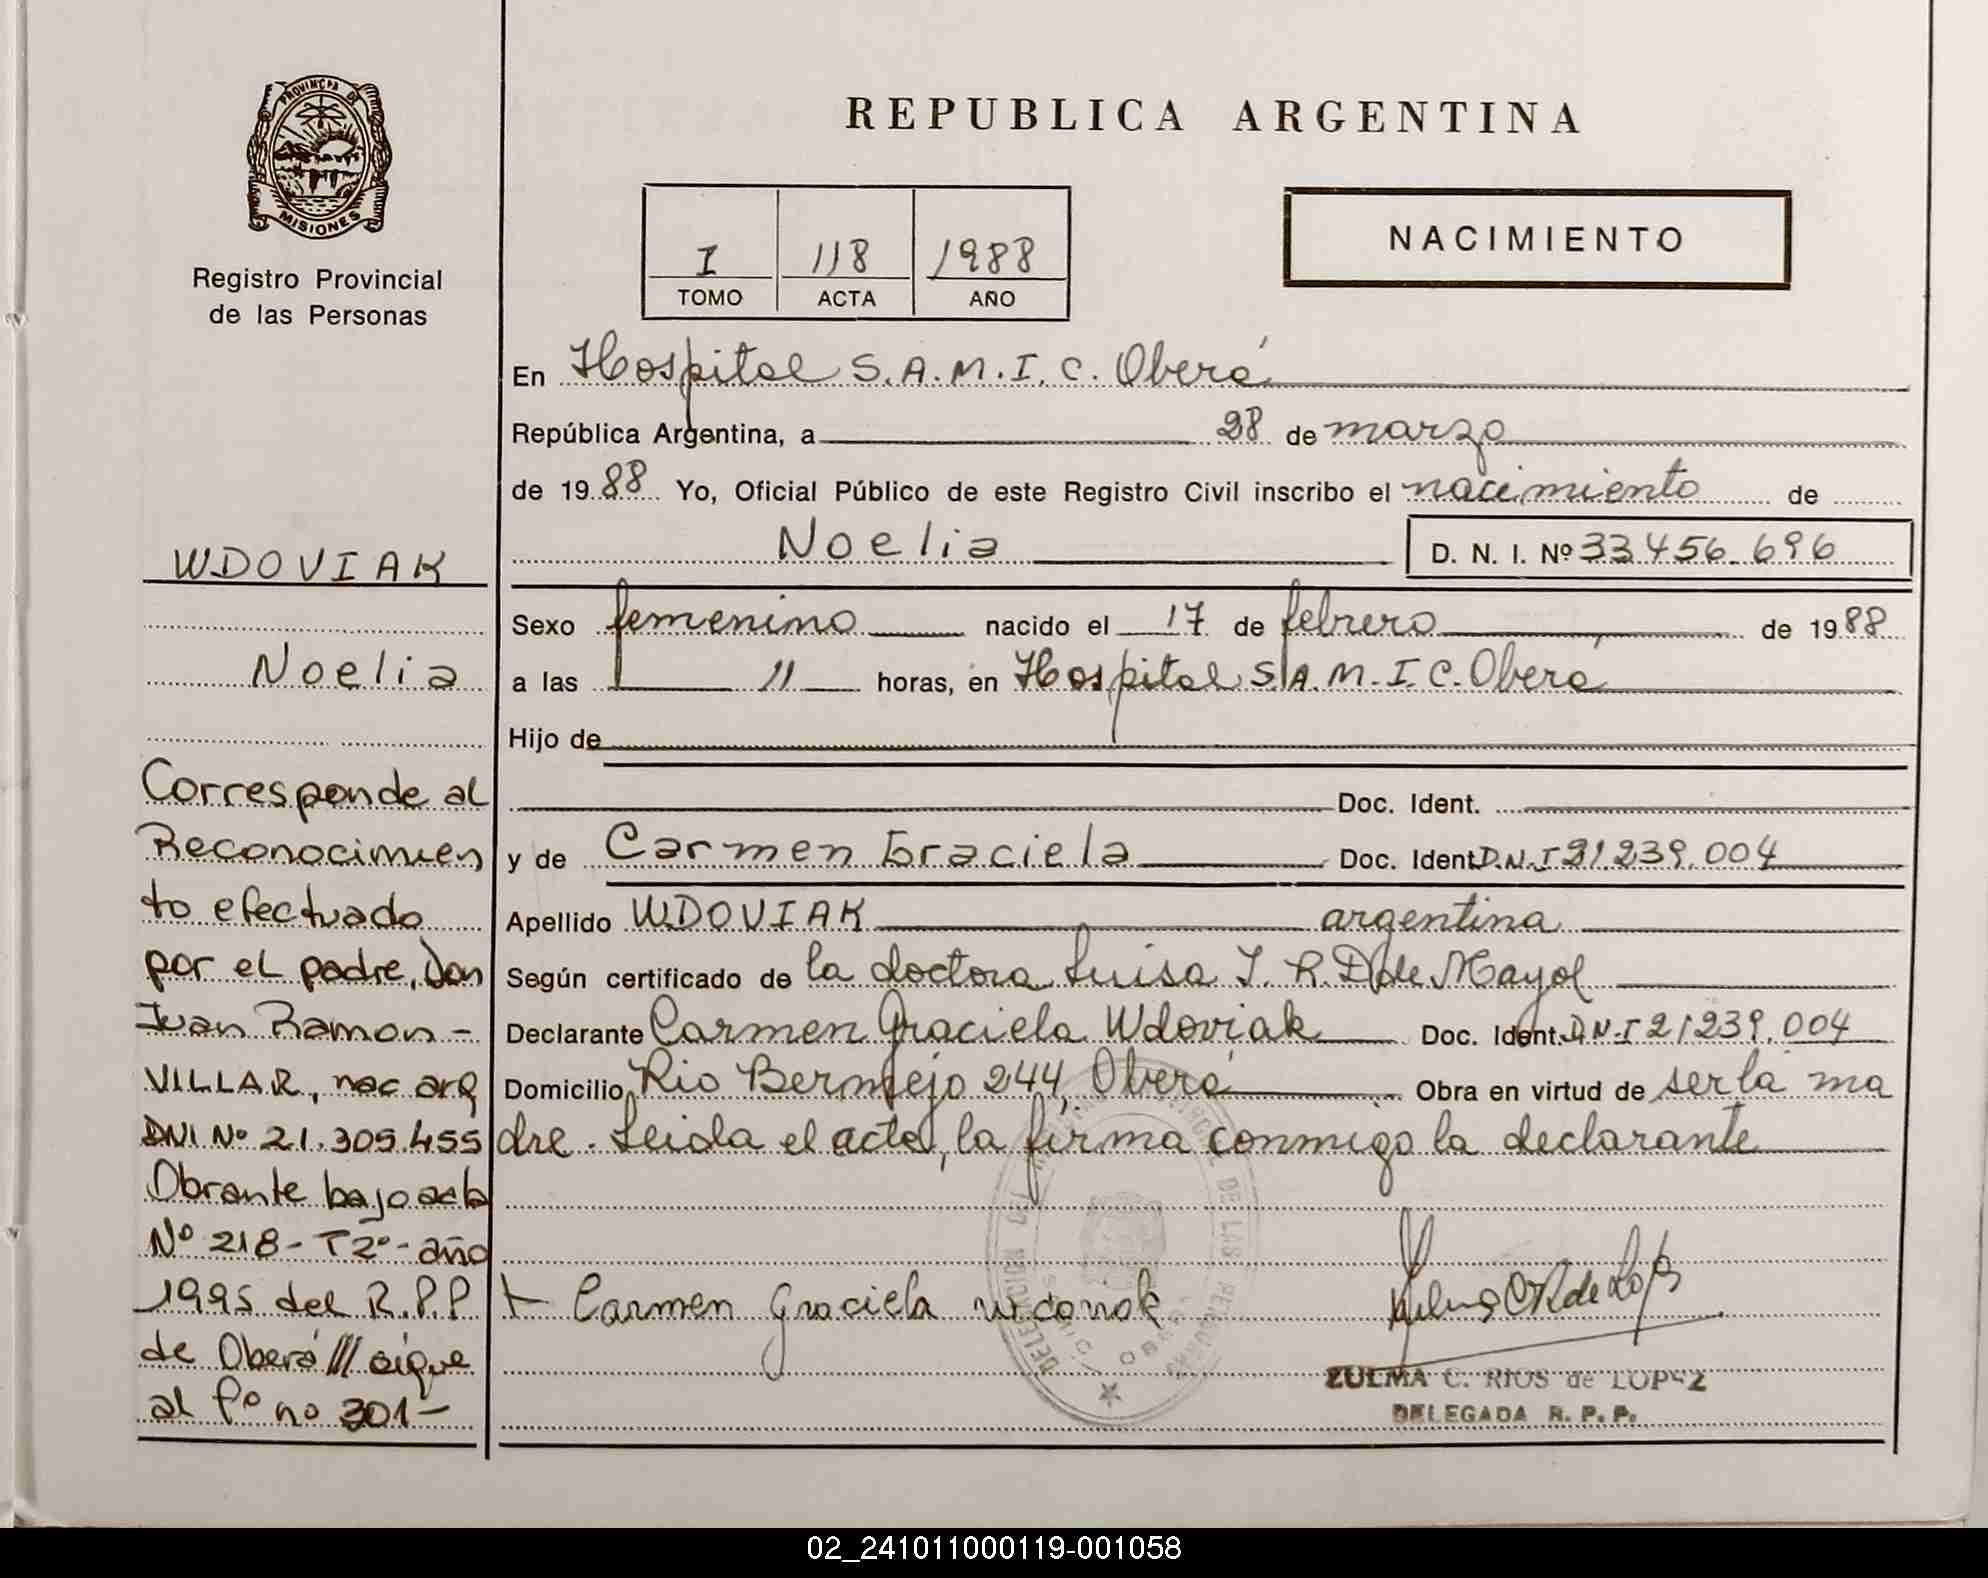 PROVINCIA DE
MISIONES
Registro Provincial
de las Personas
WDOVIAK
Noelia
Corresponde al
Reconocimien
to efectuado
por el padre, Don
Juan Ramon -
VILLAR, nac arg
DNI Nº 21.305.455
Obrante bajo acta
Nº 218 - T2º - año
1995 del R.P.P
de Oberá /// sigue
al fº nº 301 -
REPUBLICA ARGENTINA
I 118 1988
TOMO ACTA AÑO
NACIMIENTO
En Hospital S.A.M.I.C. Oberá
República Argentina, a 28 de marzo
de 1988 Yo, Oficial Público de este Registro Civil inscribo el nacimiento de
Noelia D. N. I. Nº 33.456.696
Sexo femenino nacido el 17 de febrero de 1988
a las 11 horas, en Hospital S.A.M.I.C. Oberá
Hijo de
Doc. Ident.
y de Carmen Graciela Doc. Ident. D.N.I 21.239.004
Apellido WDOVIAK argentina
Según certificado de la doctora Luisa I. R. D de Mayol
Declarante Carmen Graciela Wdoviak Doc. Ident. D.N.I 21239.004
Domicilio Rio Bermejo 244, Oberá Obra en virtud de ser la ma
dre. Leida el acta, la firma conmigo la declarante
Carmen Graciela
ZULMA C. RIOS de LOPEZ
DELEGADA R. P. P.
02_241011000119-001058